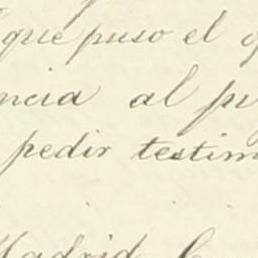 que puso el
ncia al pu
pedir testim
Madrid